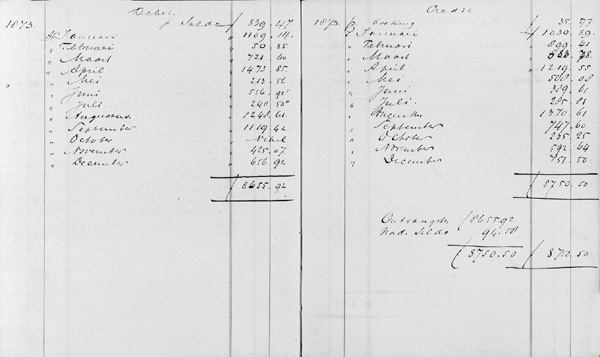 Debet
1873. p Saldo 339.47
Januari 1109.14
" Februari 50.85
" Maart 721.60
" April 1473.85
" Mei 213.56
" Juni 556.92
" Juli 240.50
" Augustus 1248.61
" September 1119.42
" October Nihil
" November 425.07
" December 656.92
8655.92
Credit
1873. 35.77
Januari 1030.59
" Februari 899.41
" Maart
" April 1219.55
" Mei 508.08
" Juni 359.61
" Juli 235.01
" Augustus 1370.61
" September 747.60
" October 235.25
" November 592.64
" December 751.50
8750.50
Ontvangsten 8655.92
Nad. Saldo 94.58
8750.50 8750.50